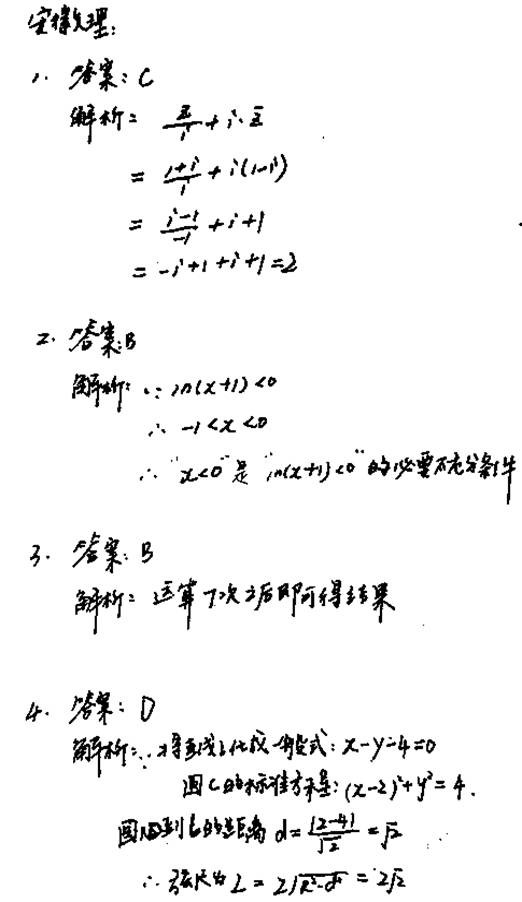 安徽文理:
1. 答案: C
解析: z/i + i·z̄
= (1+i)/i + i(1-i)
= (i-1)/-1 + i+1
= -i+1+i+1=2
2. 答案:B
解析: ∵ ln(x+1)<0
∴ -1<x<0
∴ "x<0" 是 "ln(x+1)<0" 的必要不充分条件
3. 答案: B
解析: 运算7次之后即可得结果
4. 答案: D
解析: ∵ 将直线l化成一般式: x-y-4=0
圆C的标准方程: (x-2)²+y²=4.
圆心到l的距离 d=|2-4|/√2=√2
∴ 弦长为 L=2√(R²-d²)=2√2